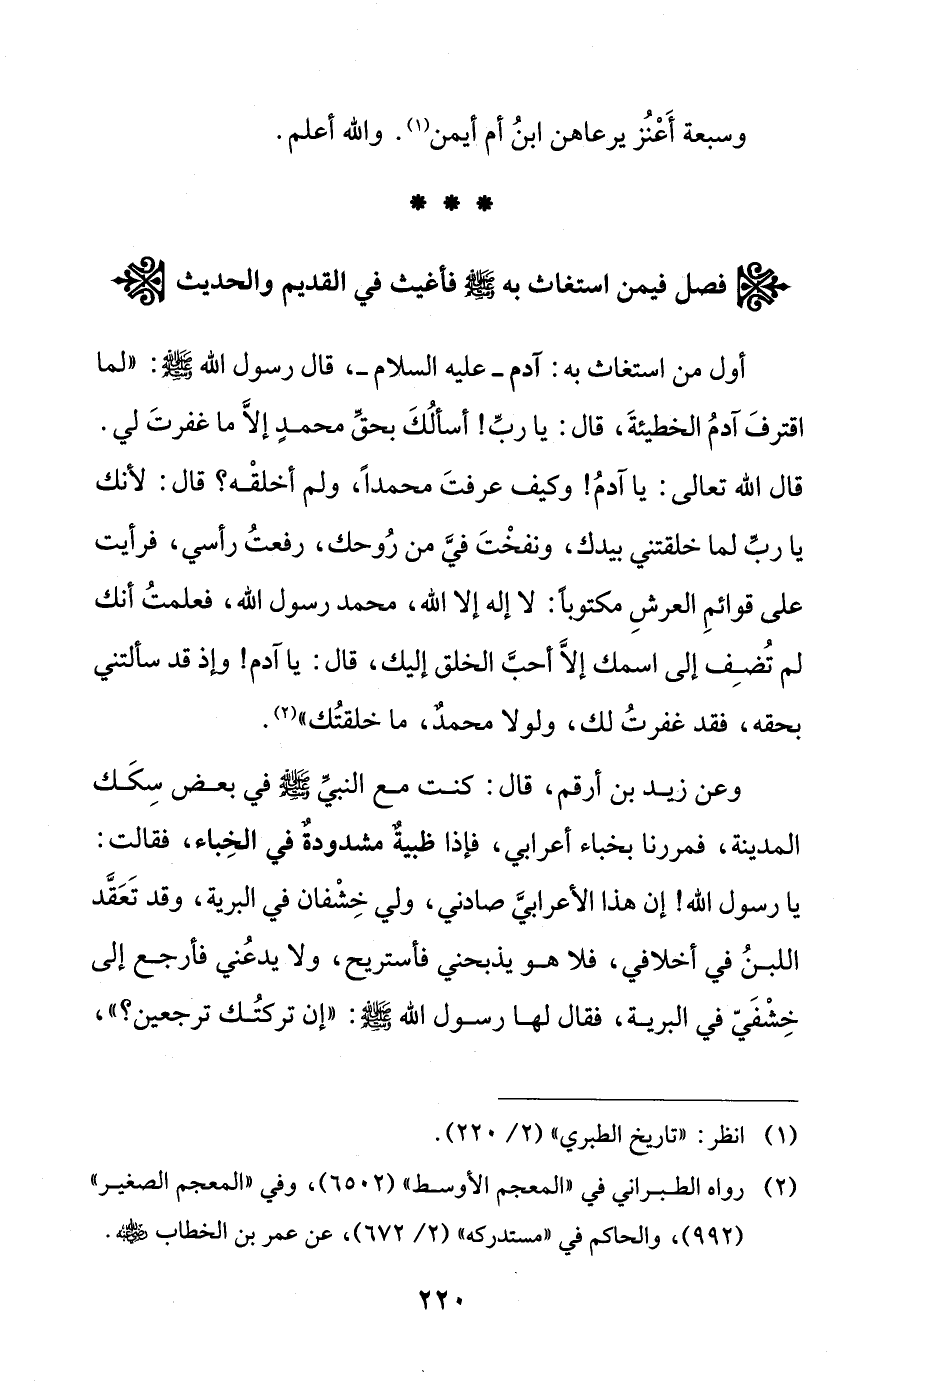 وسبعة أَعْنُز يرعاهن ابنُ أم أيمن(١). والله أعلم.
* * *
فصل فيمن استغاث به ﷺ فأغيث في القديم والحديث
أول من استغاث به: آدم ـ عليه السلام ـ، قال رسول الله ﷺ: «لما
اقترفَ آدمُ الخطيئةَ، قال: يا ربِّ! أسألُكَ بحقِّ محمدٍ إلاَّ ما غفرتَ لي.
قال الله تعالى: يا آدمُ! وكيف عرفتَ محمداً، ولم أخلقْه؟ قال: لأنك
يا ربِّ لما خلقتني بيدك، ونفخْتَ فيَّ من رُوحك، رفعتُ رأسي، فرأيت
على قوائمِ العرشِ مكتوباً: لا إله إلا الله، محمد رسول الله، فعلمتُ أنك
لم تُضِف إلى اسمك إلاَّ أحبَّ الخلق إليك، قال: يا آدم! وإذ قد سألتني
بحقه، فقد غفرتُ لك، ولولا محمدٌ، ما خلقتُك»(٢).
وعن زيد بن أرقم، قال: كنت مع النبيِّ ﷺ في بعض سِكَك
المدينة، فمررنا بخباء أعرابي، فإذا ظبيةٌ مشدودةٌ في الخِباء، فقالت:
يا رسول الله! إن هذا الأعرابيَّ صادني، ولي خِشْفان في البرية، وقد تَعَقَّد
اللبنُ في أخلافي، فلا هو يذبحني فأستريح، ولا يدعُني فأرجع إلى
خِشْفَيّ في البرية، فقال لها رسول الله ﷺ: «إن تركتُك ترجعين؟»،
(١) انظر: «تاريخ الطبري» (٢/ ٢٢٠).
(٢) رواه الطبراني في «المعجم الأوسط» (٦٥٠٢)، وفي «المعجم الصغير»
(٩٩٢)، والحاكم في «مستدركه» (٢/ ٦٧٢)، عن عمر بن الخطاب رضي الله عنه.
٢٢٠